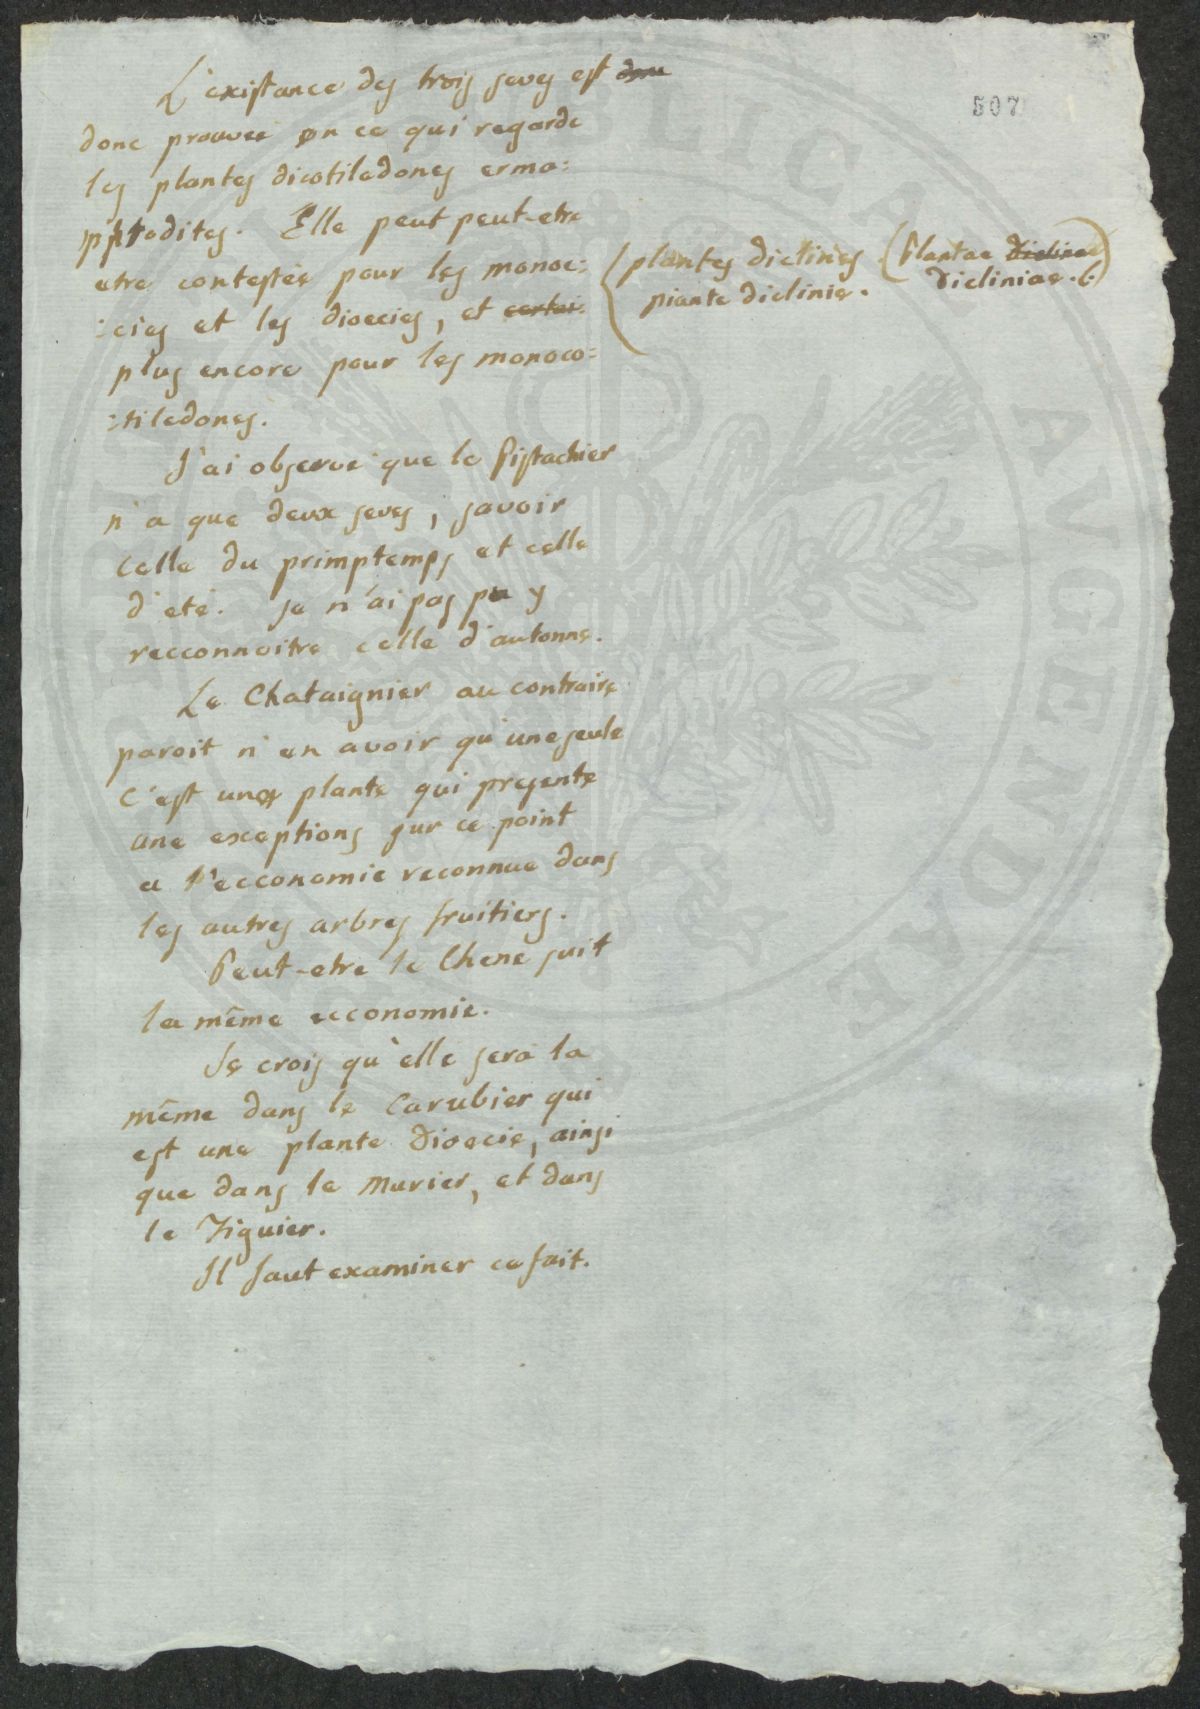 507
L'existance des trois seves est
donc prouvée en ce qui regarde
les plantes dicotiledones erma=
phrodites. Elle peut peut-etre
etre contestée pour les monoe=
=cies et les dioecies, et certai=
plus encore pour les monoco=
=tiledones.
(plantes diclines. (Plantae Diclinae
piante diclinie. Dicliniae.)
J'ai observé que le Pistachier
n'a que deux seves, savoir
celle du primptemps et celle
d'eté. Je n'ai pas pu y
recconnoitre celle d'autonne.
Le Chataignier au contraire
paroit n'en avoir qu'une seule
c'est une plante qui presente
une exceptions sur ce point
a l'ecconomie reconnue dans
les autres arbres fruitiers.
Peut-etre le Chene suit
la même ecconomie.
Je crois qu'elle sera la
même dans le Carubier qui
est une plante Dioecie, ainsi
que dans le Murier, et dans
le Figuier.
Il faut examiner ce fait.